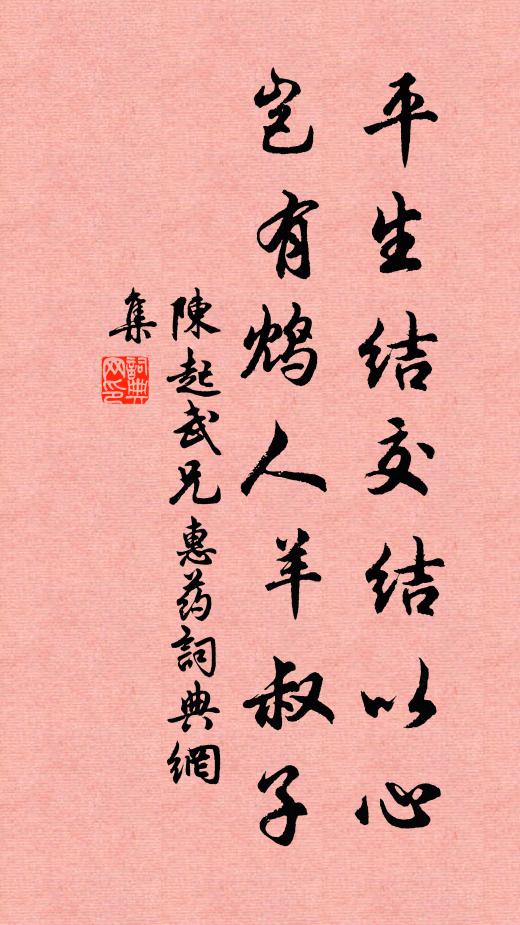 平生结交结以心
岂有鸩人羊叔子
陳起武兄惠药詞典網
集
詞典网印